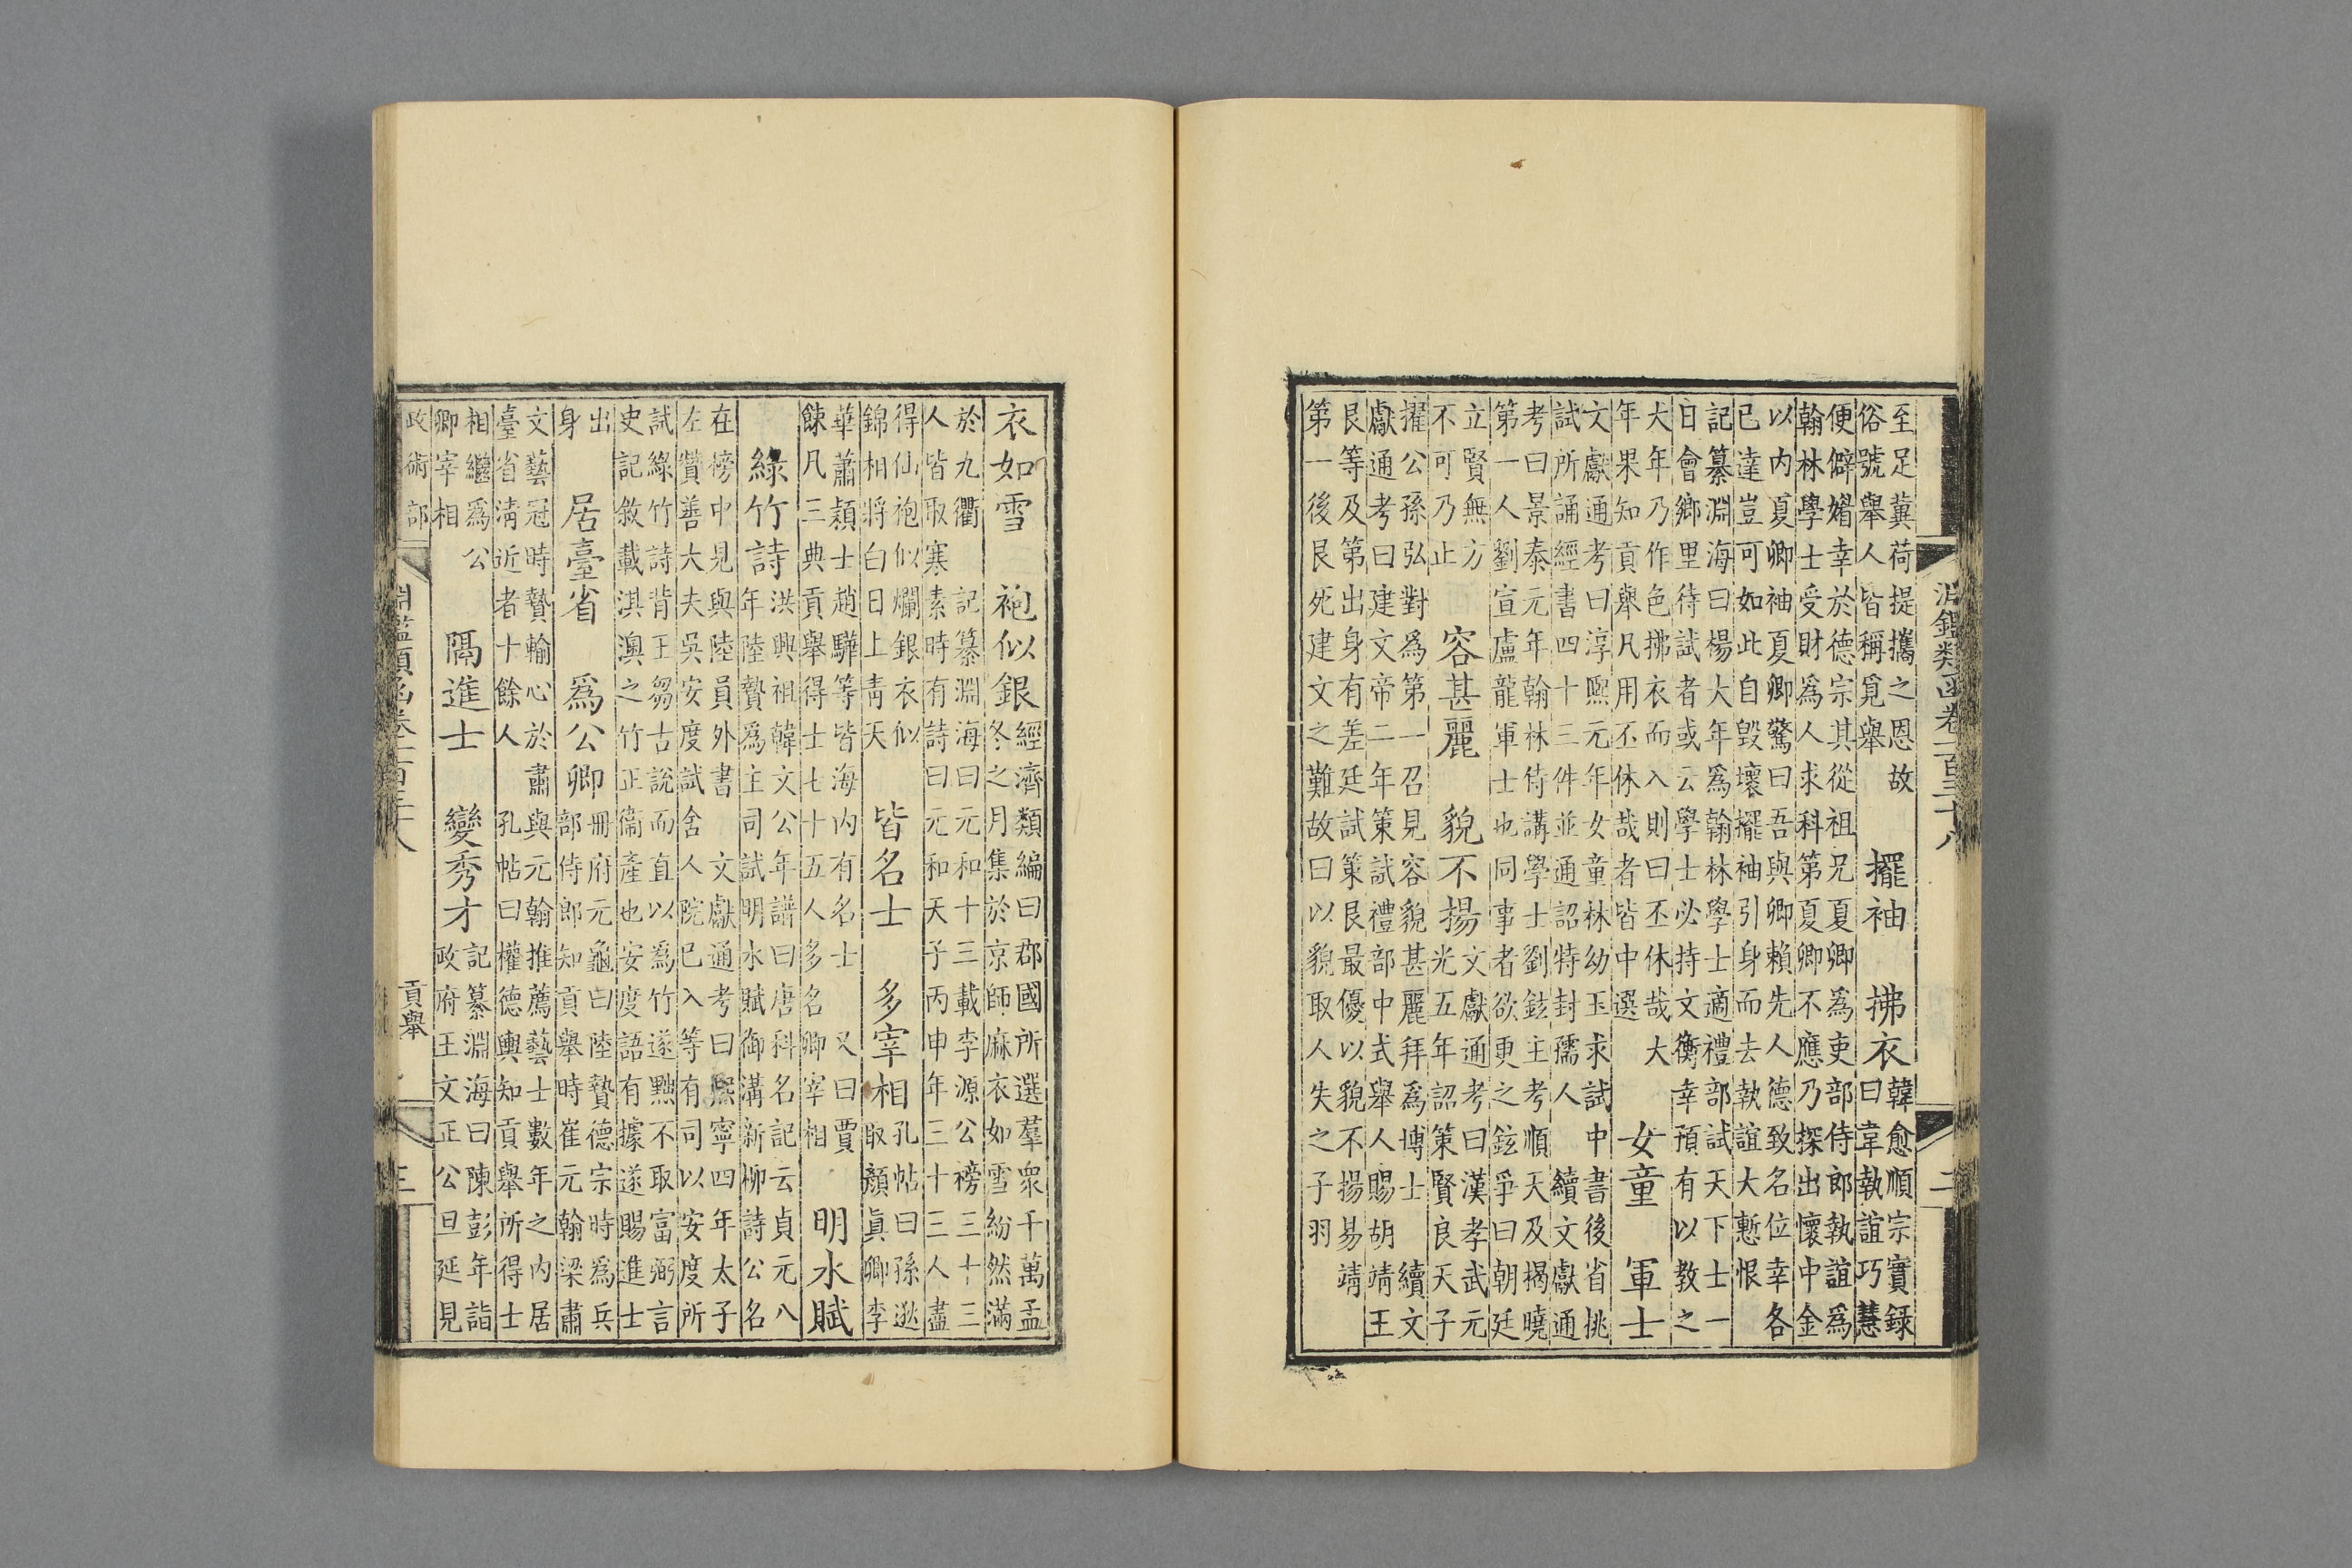 淵鑑類函卷一百三十八 二
至足冀荷提攜之恩故
俗號舉人皆稱覓舉
擺袖 拂衣
韓愈順宗實錄
曰韋執誼巧慧
便僻媢幸於德宗其從祖兄夏卿爲吏部侍郎執誼爲
翰林學士受財爲人求科第夏卿不應乃探出懷中金
以内夏卿袖夏卿驚曰吾與卿賴先人德致名位幸各
已達豈可如此自毀壞擺袖引身而去執誼大慙恨
記纂淵海曰楊大年爲翰林學士適禮部試天下士一
日會鄉里待試者或云學士必持文衡幸預有以教之
大年乃作色拂衣而入則曰丕休哉大
年果知貢舉凡用丕休哉者皆中選
女童 軍士
文獻通考曰淳熙元年女童林幼玉求試中書後省挑
試所誦經書四十三件並通詔特封孺人 續文獻通
考曰景泰元年翰林侍講學士劉鉉主考順天及揭曉
第一人劉宣盧龍軍士也同事者欲更之鉉爭曰朝廷
立賢無方
不可乃止
容甚麗 貌不揚
文獻通考曰漢孝武元
光五年詔策賢良天子
擢公孫弘對爲第一召見容貌甚麗拜爲博士 續文
獻通考曰建文帝二年策試禮部中式舉人賜胡靖王
艮等及第出身有差廷試策艮最優以貌不揚易靖
第一後艮死建文之難故曰以貌取人失之子羽
衣如雪 袍似銀
經濟類編曰郡國所選羣衆千萬孟
冬之月集於京師麻衣如雪紛然滿
於九衢 記纂淵海曰元和十三載李源公榜三十三
人皆取寒素時有詩曰元和天子丙申年三十三人盡
得仙袍似爛銀衣似
錦相將白日上青天
皆名士 多宰相
孔帖曰孫逖
取顏眞卿李
華蕭潁士趙驊等皆海内有名士 又曰賈
餗凡三典貢舉得士七十五人多名卿宰相
明水賦
綠竹詩
洪興祖韓文公年譜曰唐科名記云貞元八
年陸贄爲主司試明水賦御溝新柳詩公名
在榜中見與陸員外書 文獻通考曰熙寧四年太子
左贊善大夫吳安度試舍人院已入等有司以安度所
試綠竹詩背王芻古說而直以爲竹遂黜不取富弼言
史記敘載淇澳之竹正衞產也安度語有據遂賜進士
出
身
居臺省 爲公卿
冊府元龜曰陸贄德宗時爲兵
部侍郎知貢舉時崔元翰梁肅
文藝冠時贄輸心於肅與元翰推薦藝士數年之内居
臺省淸近者十餘人 孔帖曰權德輿知貢舉所得士
相繼爲公
卿宰相
隔進士 變秀才
記纂淵海曰陳彭年詣
政府王文正公旦延見
政術部 淵鑑類函卷一百三十八 貢舉 三